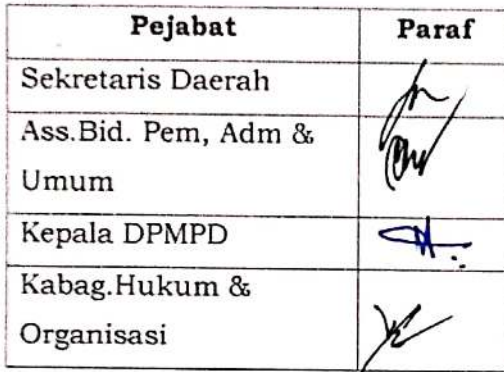 Pejabat Paraf
Sekretaris Daerah
Ass.Bid. Pem, Adm &
Umum
Kepala DPMPD
Kabag.Hukum &
Organisasi